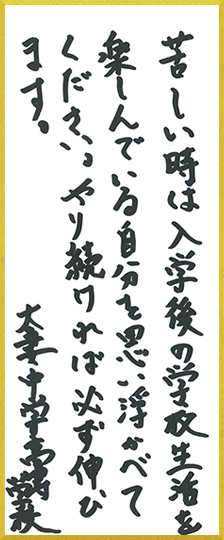 苦しい時は入学後の学校生活を
楽しんでいる自分を思い浮かべて
ください。やり続ければ必ず伸び
ます。
大妻中学高等学校